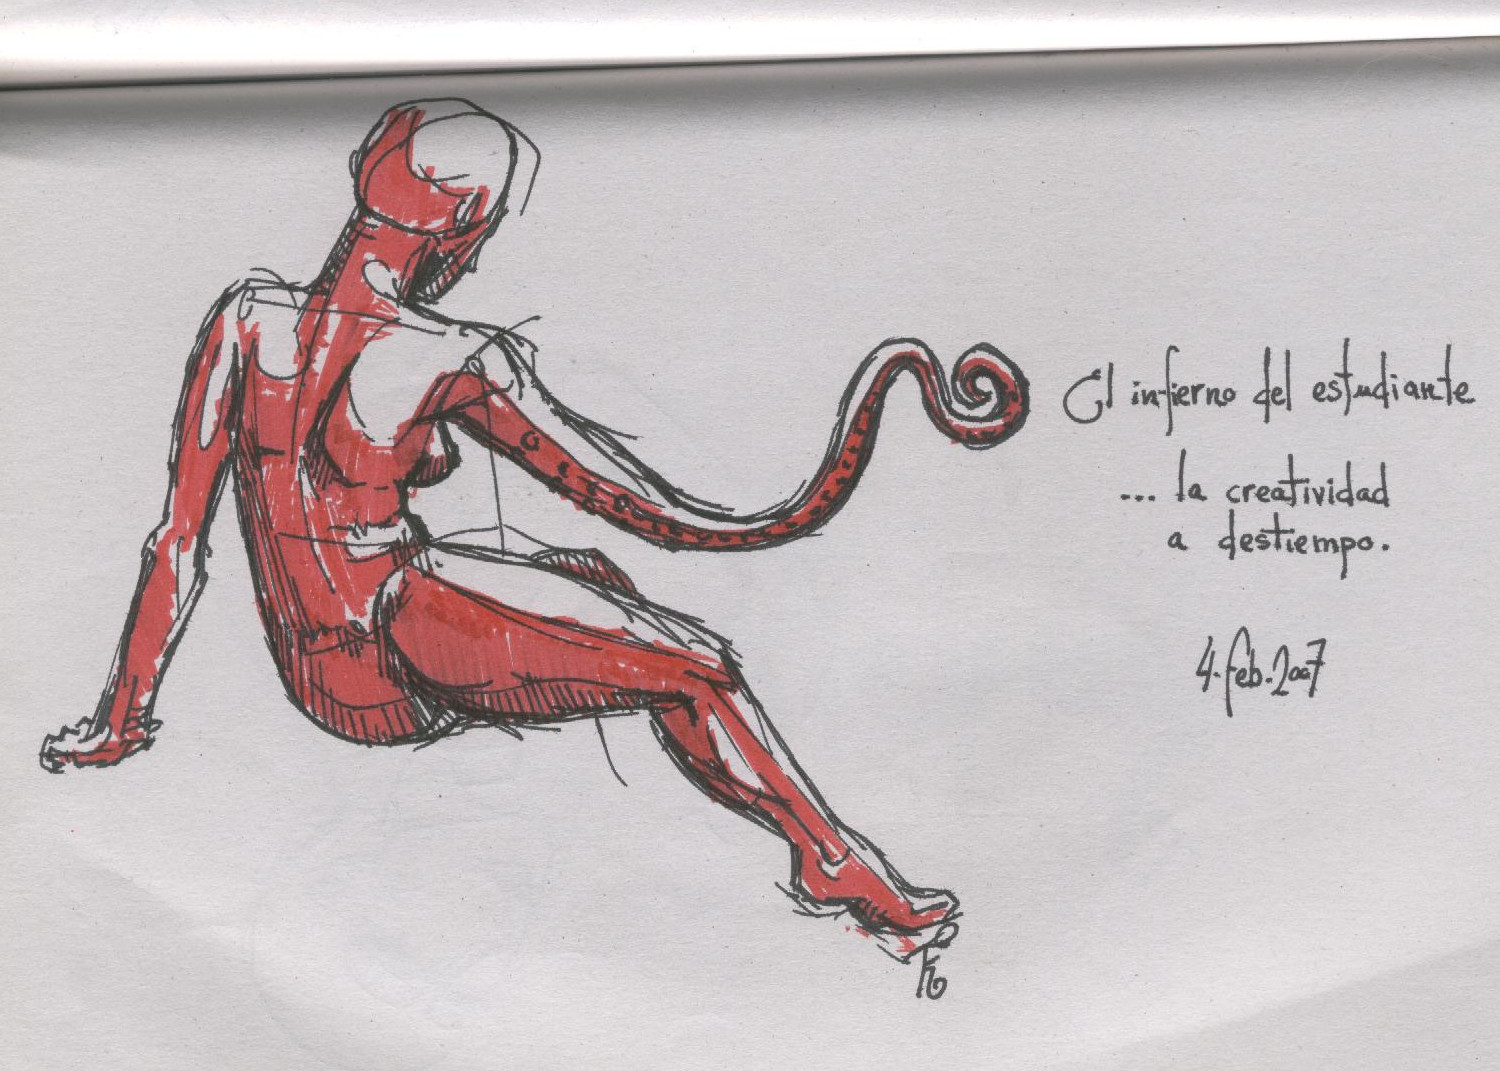 El infierno del estudiante
... la creatividad
a destiempo.
4.feb.2007